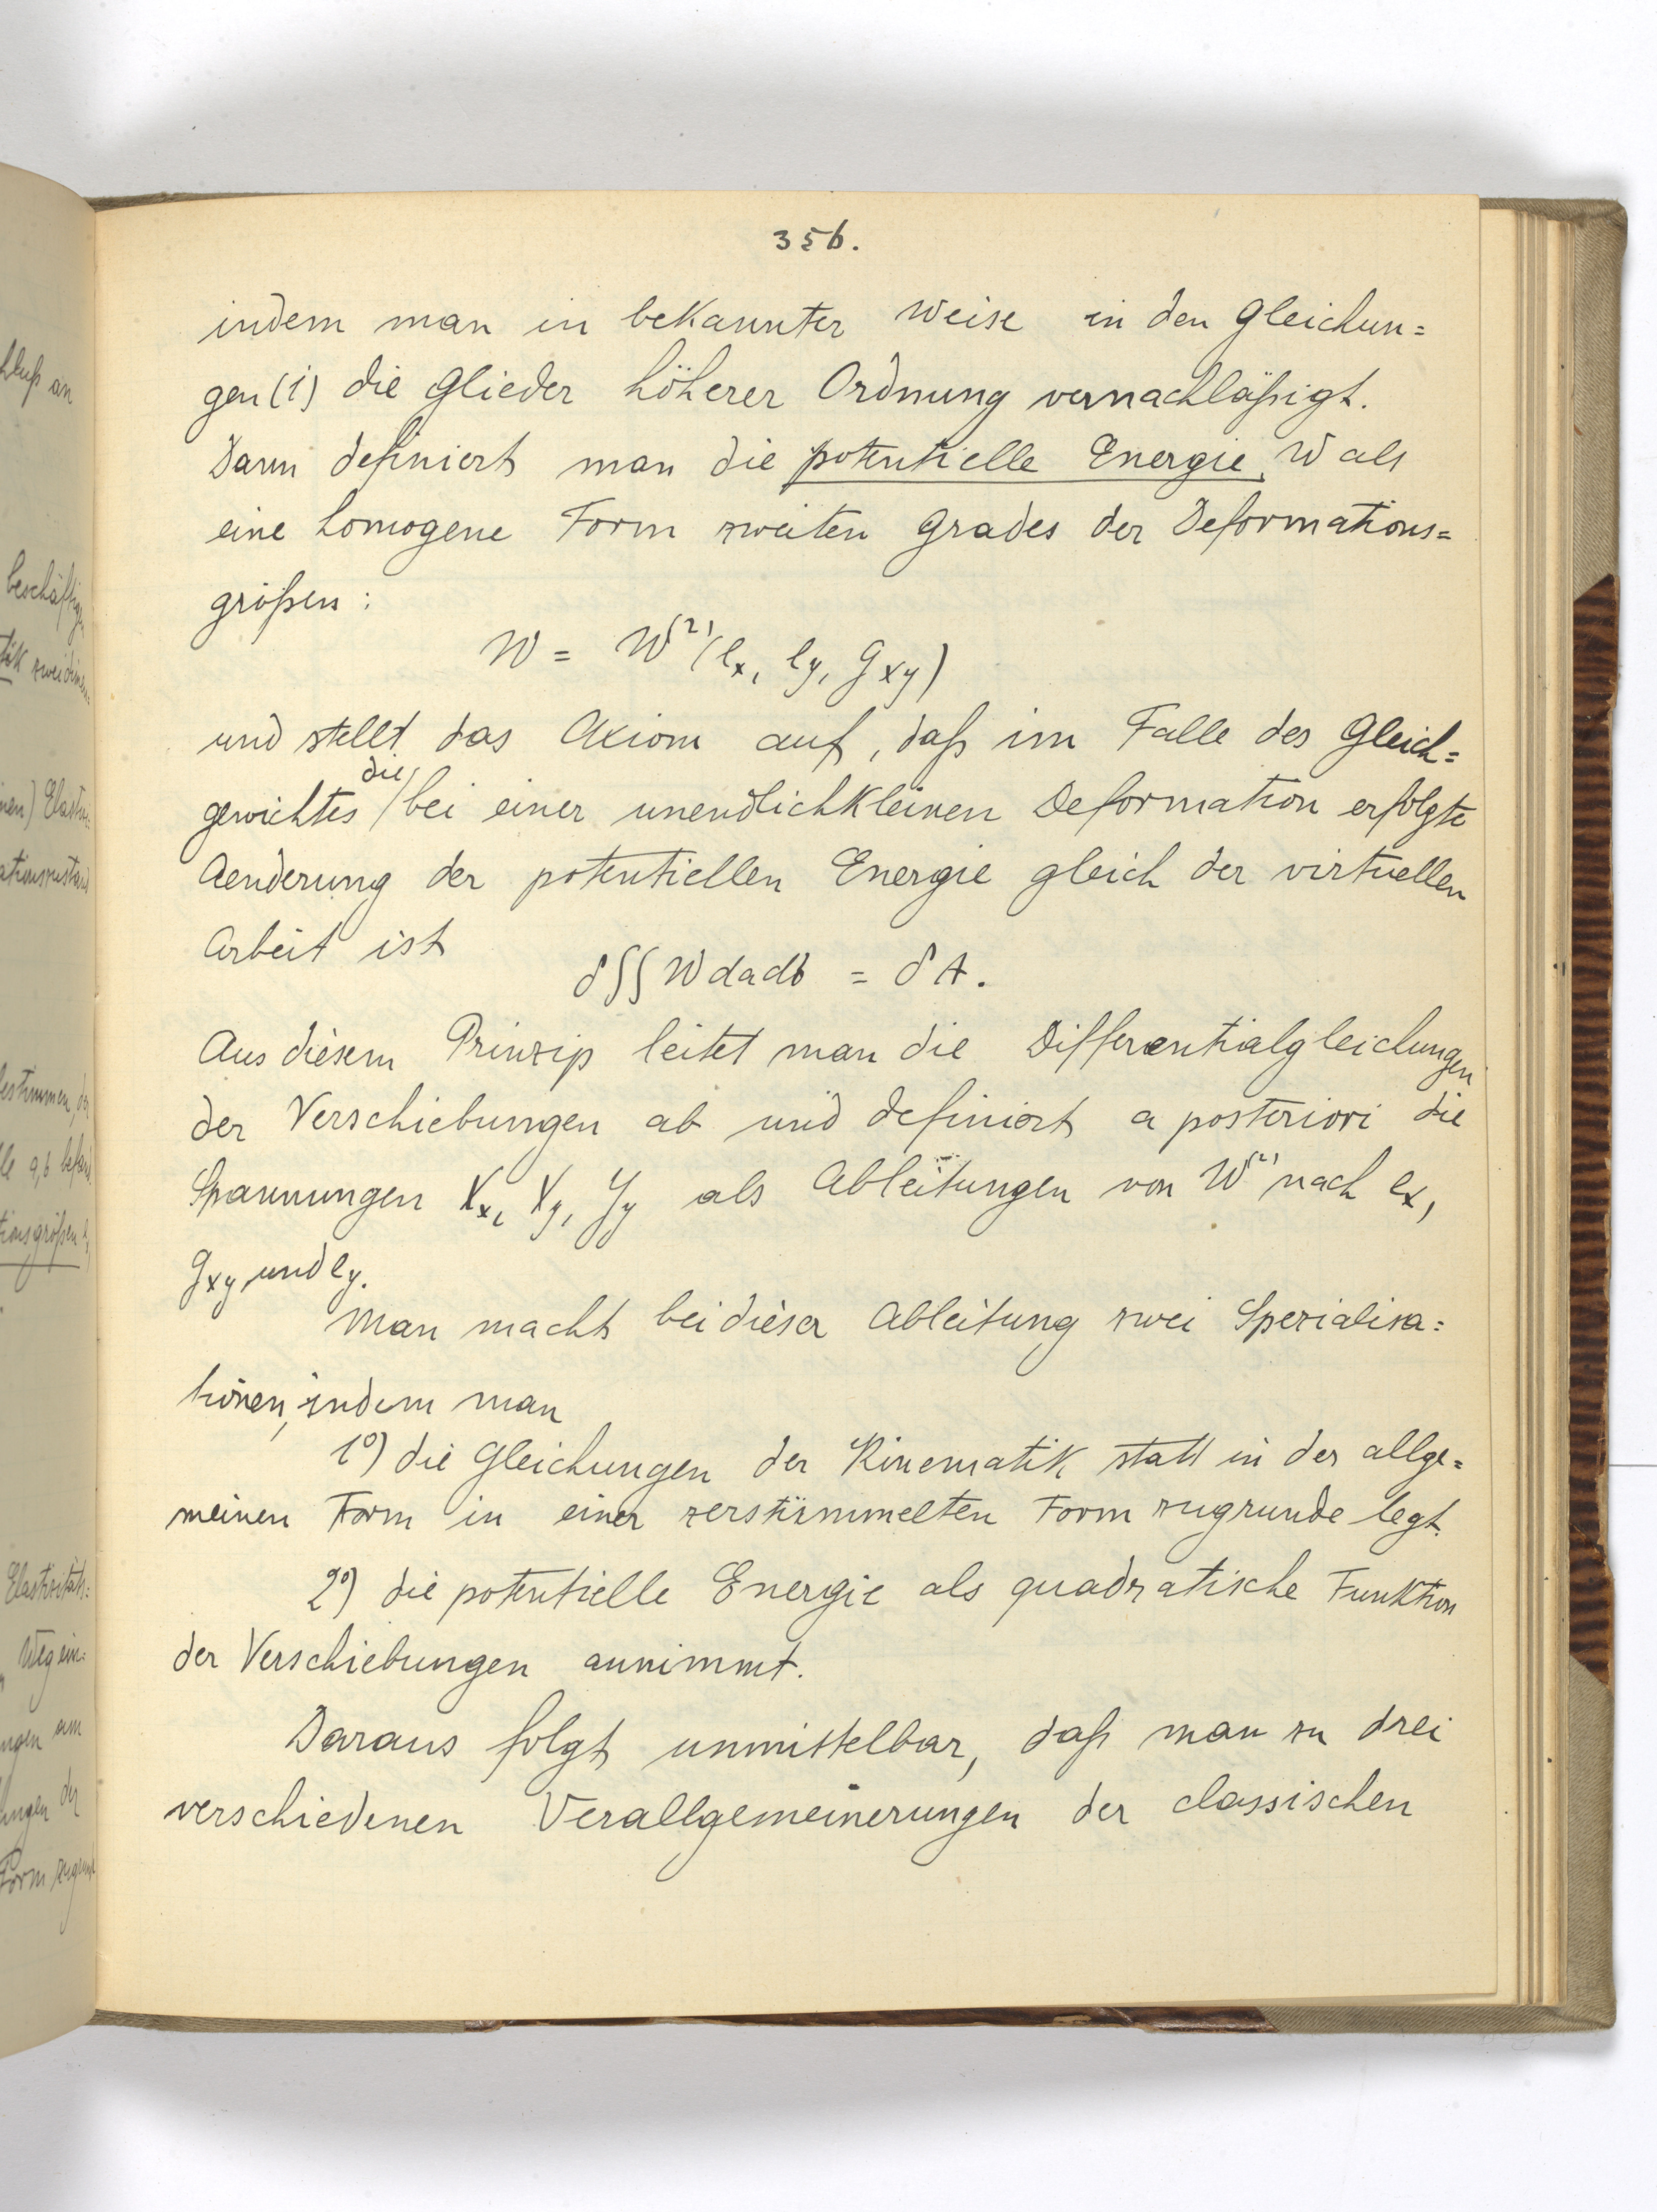 356.
indem man in bekannter Weise in den Gleichun=
gen (1) die Glieder höherer Ordnung vernachläßigt.
Dann definiert man die potentielle Energie W als
eine homogene Form zweiten Grades der Deformations=
größen:
W = W⁽²⁾(eₓ, e_y, g_xy)
und stellt das Axiom auf, daß im Falle des Gleich=
die
gewichtes bei einer unendlichkleinen Deformation erfolgte
Aenderung der potentiellen Energie gleich der virtuellen
Arbeit ist
δ∫∫ W da db = δA.
Aus diesem Prinzip leitet man die Differentialgleichungen
der Verschiebungen ab und definiert a posteriori die
Spannungen X_x, X_y, Y_y als Ableitungen von W⁽²⁾ nach e_x,
g_xy und e_y.
Man macht bei dieser Ableitung zwei Spezialisa=
tionen, indem man
1°) die Gleichungen der Kinematik statt in der allge=
meinen Form in einer zerstümmelten Form zugrunde legt.
2°) die potentielle Energie als quadratische Funktion
der Verschiebungen annimmt.
Daraus folgt unmittelbar, daß man zu drei
verschiedenen Verallgemeinerungen der classischen